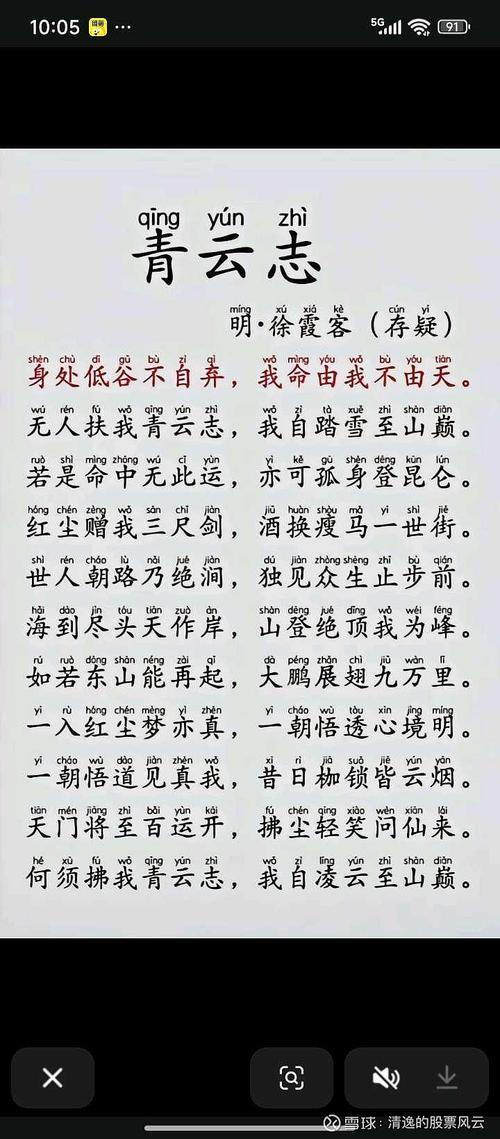 10:05 ··· 5G 91
qīng yún zhì
青云志
míng xú xiá kè cún yí
明·徐霞客（存疑）
shēn chù dī gǔ bù zì qì wǒ mìng yóu wǒ bù yóu tiān
身处低谷不自弃，我命由我不由天。
wú rén fú wǒ qīng yún zhì wǒ zì tà xuě zhì shān diān
无人扶我青云志，我自踏雪至山巅。
ruò shì mìng zhōng wú cǐ yùn yì kě gū shēn dēng kūn lún
若是命中无此运，亦可孤身登昆仑。
hóng chén zèng wǒ sān chǐ jiàn jiǔ huàn shòu mǎ yī shì jiē
红尘赠我三尺剑，酒换瘦马一世街。
shì rén cháo lù nǎi jué jiàn dú jiàn zhòng shēng zhǐ bù qián
世人朝路乃绝涧，独见众生止步前。
hǎi dào jìn tóu tiān zuò àn shān dēng jué dǐng wǒ wéi fēng
海到尽头天作岸，山登绝顶我为峰。
rú ruò dōng shān néng zài qǐ dà péng zhǎn chì jiǔ wàn lǐ
如若东山能再起，大鹏展翅九万里。
yī rù hóng chén mèng yì zhēn yī zhāo wù tòu xīn jìng míng
一入红尘梦亦真，一朝悟透心境明。
yī cháo wù dào jiàn zhēn wǒ xī rì jiā suǒ jiē yún yān
一朝悟道见真我，昔日枷锁皆云烟。
tiān mén jiāng zhì bǎi yùn kāi fú chén qīng xiào wèn xiān lái
天门将至百运开，拂尘轻笑问仙来。
hé xū fú wǒ qīng yún zhì wǒ zì líng yún zhì shān diān
何须拂我青云志，我自凌云至山巅。
雪球：清逸的股票风云